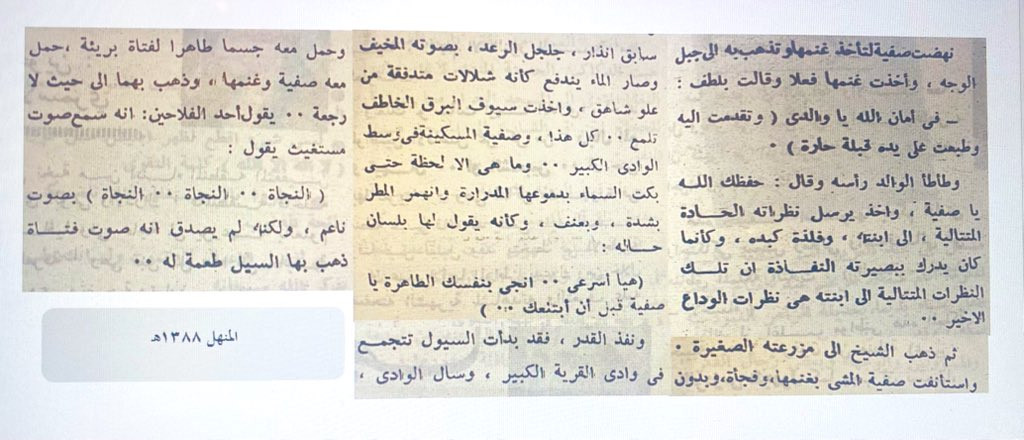 نهضت صفية لتأخذ غنمها وتذهب به الى جبل
الوجه ، وأخذت غنمها فعلا وقالت بلطف :
ـ فى أمان الله يا والدى ( وتقدمت اليه
وطبعت على يده قبلة حارة ) ٠
وطاطأ الوالد رأسه وقال : حفظك اللـه
يا صفية ، واخذ يرسل نظراته الحـادة
المتتالية ، الى ابنته ، وفلذة كبده ، وكأنما
كان يدرك ببصيرته النفـاذة ان تلـك
النظرات المتتالية الى ابنته هى نظرات الوداع
الاخير ٠٠
ثم ذهب الشيخ الى مزرعته الصغيرة ٠
واستأنفت صفية المشى بغنمها، وفجأة، وبدون
سابق انذار ، جلجل الرعد ، بصوته المخيف
وصار الماء يندفع كأنه شلالات متدفقة من
علو شاهق ، واخذت سيوف البرق الخاطف
تلمع ٠٠ كل هذا ، وصفية المسكينة فى وسط
الوادى الكبير ٠٠ وما هى الا لحظة حتـى
بكت السماء بدموعها المدرارة وانهمر المطر
بشدة ، وبعنف ، وكأنه يقول لها بلسان
حـاله :
(هيا أسرعى ٠٠ انجي بنفسك الطاهرة يا
صفية قبل أن أبتلعك ٠٠ )
ونفذ القدر ، فقد بدأت السيول تتجمع
فى وادى القرية الكبير ، وسال الوادى ،
وحمل معه جسما طاهرا لفتاة بريئة ، حمل
معه صفية وغنمها ، وذهب بهما الى حيث لا
رجعة ٠٠ يقول أحد الفلاحين: انه سمع صوت
مستغيث يقول :
( النجاة ٠٠ النجاة ٠٠ النجاة ) بصوت
ناعم ، ولكنه لم يصدق انه صوت فتـاة
ذهب بها السيل طعمة له ٠٠
المنهل ١٣٨٨هـ